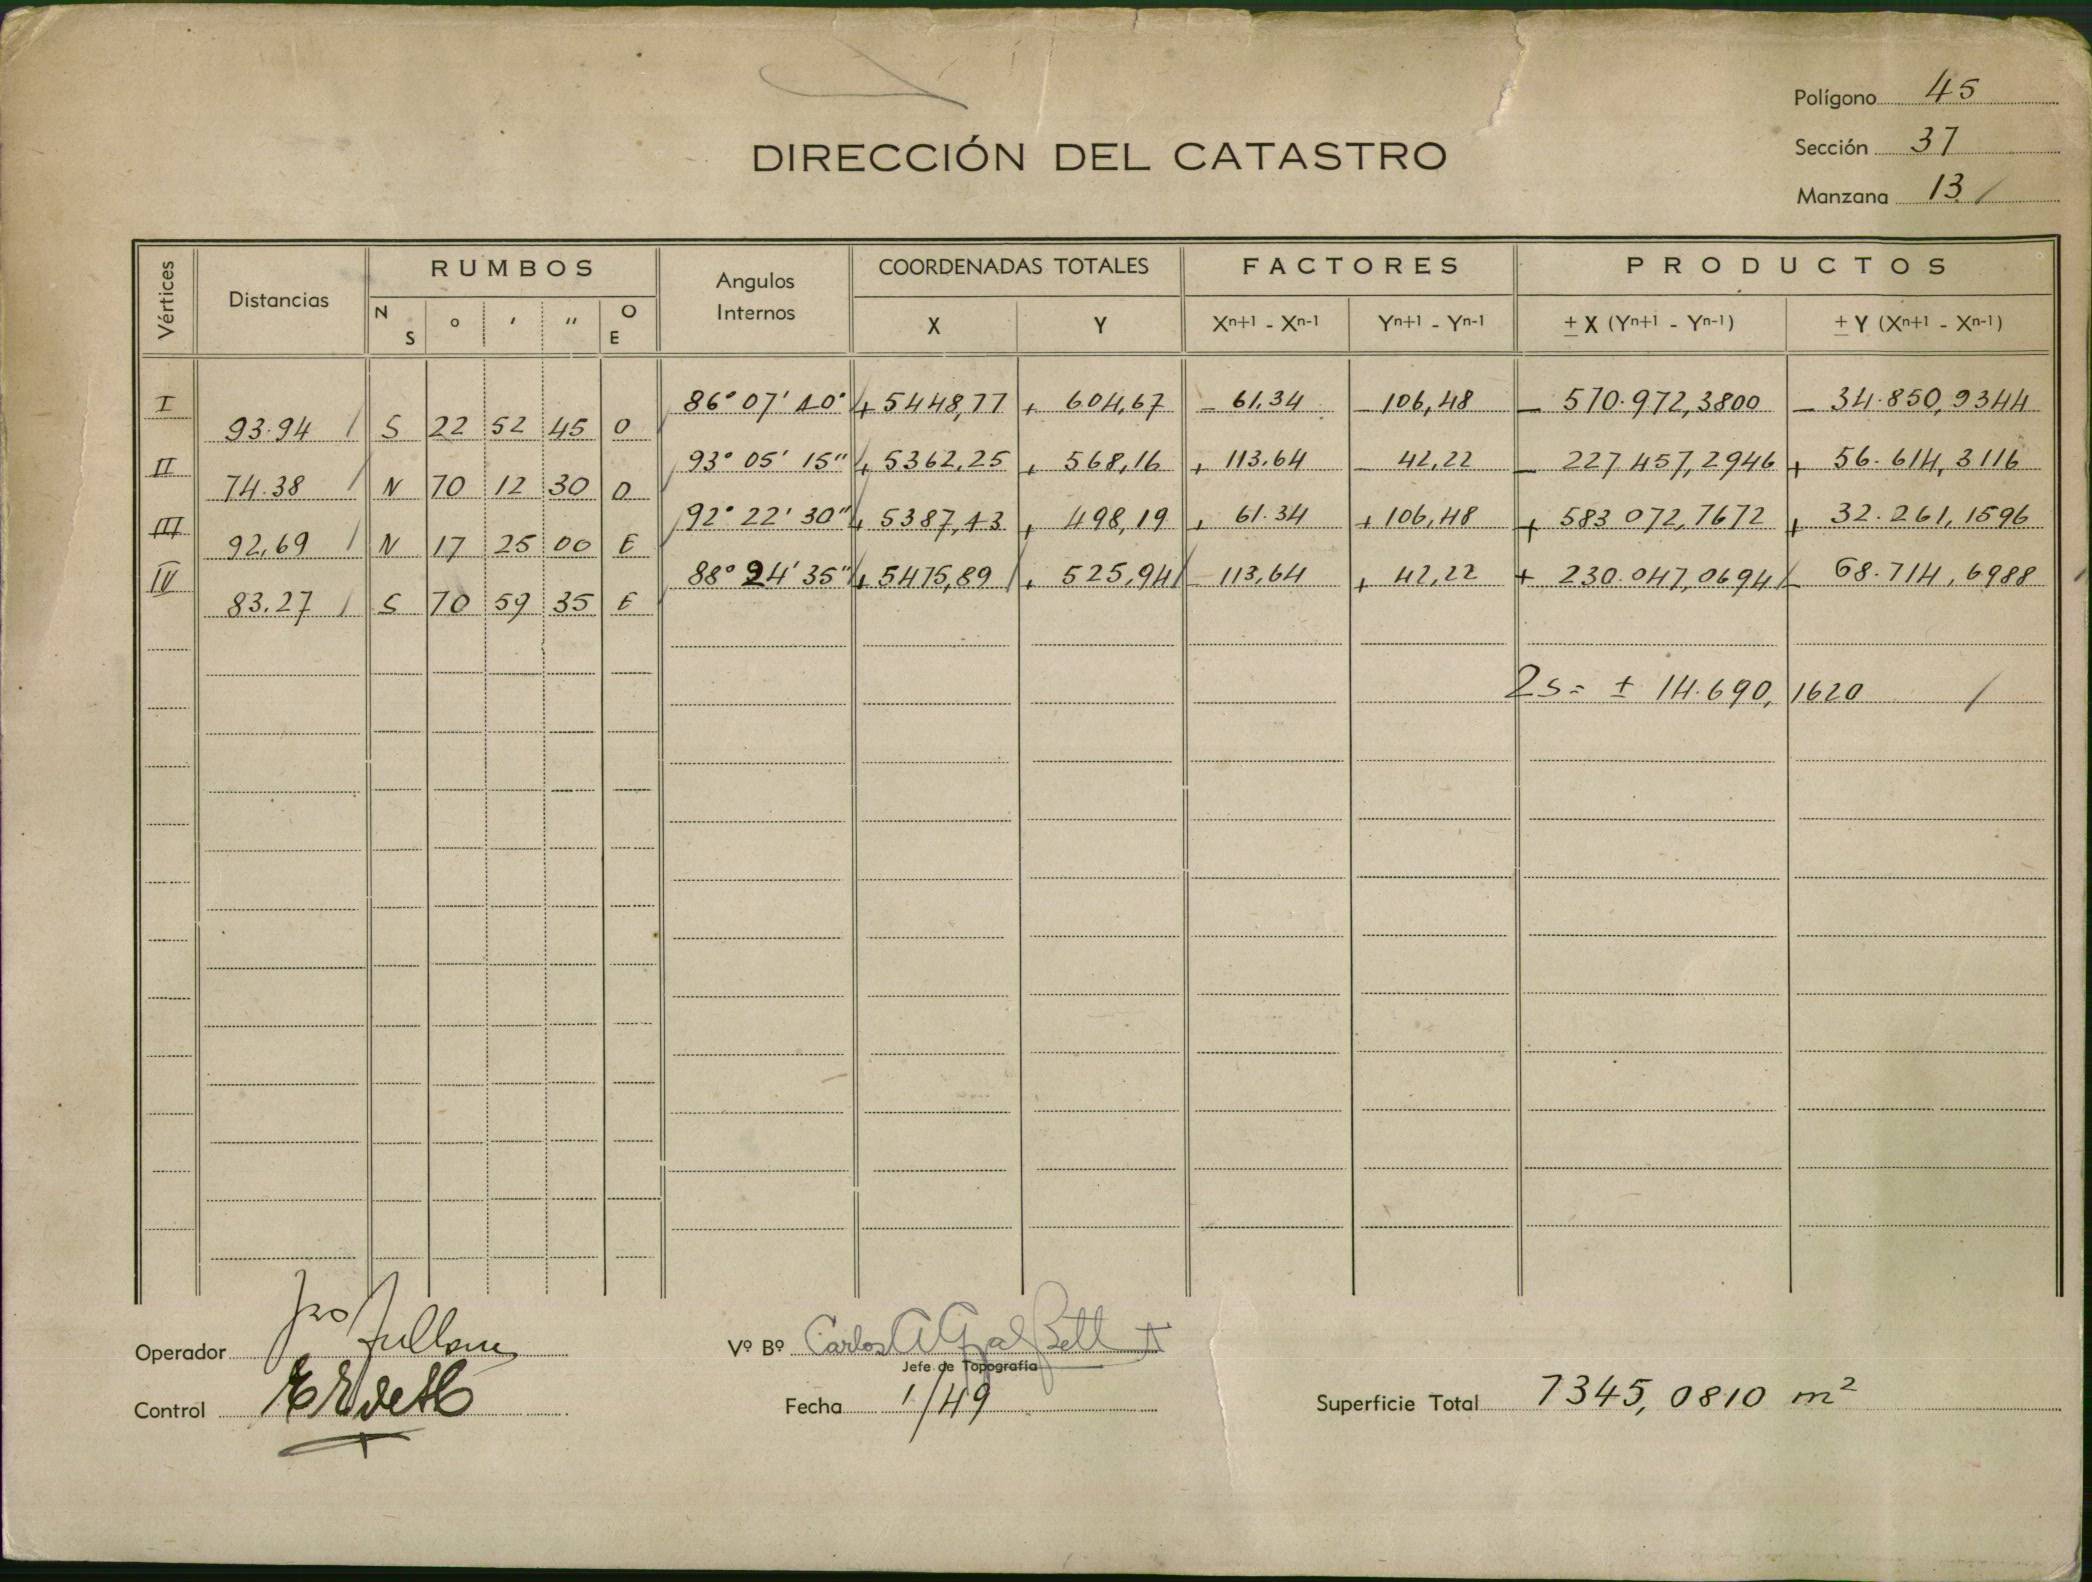 Polígono 45
Sección 37
Manzana 13 /
DIRECCIÓN DEL CATASTRO
Vértices Distancias RUMBOS Angulos Internos COORDENADAS TOTALES FACTORES PRODUCTOS
N S ° ' " O E X Y Xn+1 - Xn-1 Yn+1 - Yn-1 ± X (Yn+1 - Yn-1) ± Y (Xn+1 - Xn-1)
I 86° 07' 40" + 5448,77 + 604,67 – 61.34 – 106,48 – 570.972,3800 – 34.850,9344
93.94 / S 22 52 45 O
II 93° 05' 15" + 5362,25 + 568,16 + 113.64 – 42,22 – 227.457,2946 + 56.614,3116
74.38 / N 70 12 30 O
III 92° 22' 30" + 5387,43 + 498,19 + 61.34 + 106,48 + 583.072,7672 + 32.261,1596
92,69 / N 17 25 00 E
IV 88° 24' 35" + 5475,89 / + 525,94 / – 113,64 + 42,22 + 230.047,0694 / – 68.714,6988 /
83.27 / S 70 59 35 E
2S= ± 14.690,1620 /
Operador
Vº Bº Carlos A
Jefe de Topografía
Control
Fecha 1/49
Superficie Total 7345,0810 m²